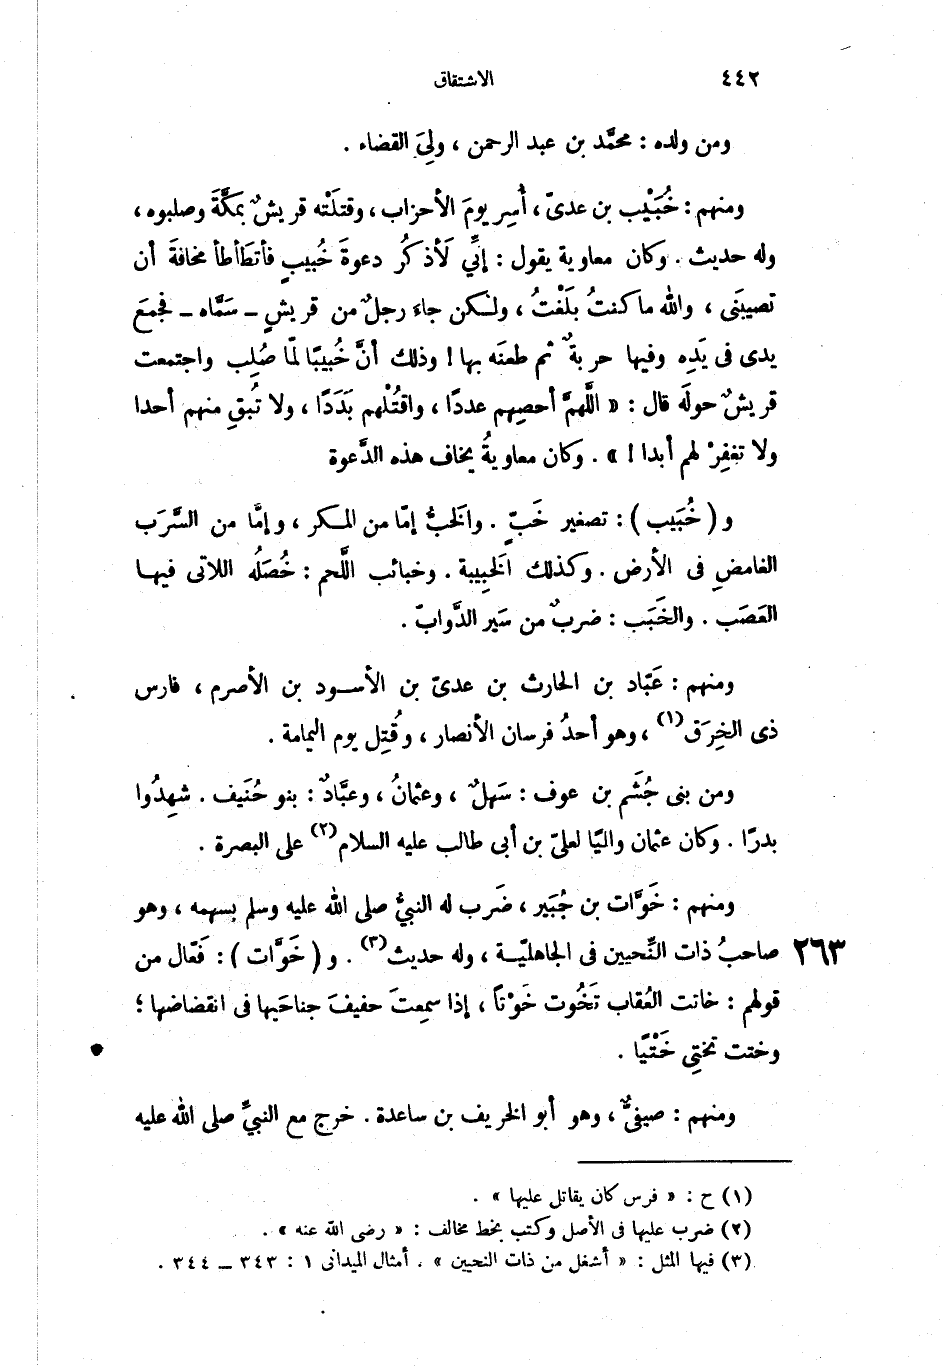 ٤٤٢ الاشتقاق
ومن ولده : محمَّد بن عبد الرحمن ، ولِيَ القضاء .
ومنهم : خُبَيْب بن عدىّ ، أُسِر يومَ الأحزاب ، وقتلَتْه قريشٌ بمكَّةَ وصلبوه ،
وله حديث . وكان معاوية يقول : إنِّي لَأذكُر دعوةَ خُبيبٍ فأتطَأطأ مخافةَ أن
تصيبَنى ، والله ما كنتُ بلَغْتُ ، ولكن جاءَ رجلٌ من قريشٍ – سَمَّاه – فجمعَ
يدى فى يَدِه وفيها حربةٌ ثم طعنَه بها ! وذلك أنَّ خُبيبًا لمّا صُلِب واجتمعت
قريشٌ حولَه قال : « اللَّهمَّ أحصِهم عددًا ، واقتُلْهم بَدَدًا ، ولا تُبقِ منهم أحدا
ولا تغفِرْ لهم أبدا ! » . وكان معاويةُ يخاف هذه الدَّعوة
و ( خُبَيب ) : تصغير خَبٍّ . والخَبُّ إمّا من المكر ، وإمَّا من السَّرَب
الغامضِ فى الأرض . وكذلك الخَبِيبة . وخبائب اللَّحم : خُصَلُه اللاتى فيها
العَصَب . والخَبَب : ضربٌ من سَير الدَّوابّ .
ومنهم : عَبّاد بن الحارث بن عدىّ بن الأسود بن الأصرم ، فارس
ذى الخِرَق(١) ، وهو أحدُ فرسان الأنصار ، وقُتِل يوم اليمامة .
ومن بنى جُشَم بن عوف : سَهلٌ ، وعثمانُ ، وعبَّادٌ : بنو حُنَيف . شهِدُوا
بدرًا . وكان عثمان واليًا لعلىّ بن أبى طالب عليه السلام(٢) على البصرة .
ومنهم : خَوَّات بن جُبَير ، ضَرب له النبيُّ صلى الله عليه وسلم بسهمه ، وهو
صاحبُ ذات النِّحيين فى الجاهليّة ، وله حديث(٣) . و ( خَوَّات ) : فَعّال من ٢٦٣
قولهم : خاتت العُقاب تَخُوت خَوْتاً ، إذا سمِعتَ حفيفَ جناحَيها فى انقضاضها ؛
وختت تختِي خَتْيًا .
ومنهم : صيفىٌّ ، وهو أبو الخريف بن ساعدة . خرج مع النبيِّ صلى الله عليه
(١) ح : « فرس كان يقاتل عليها » .
(٢) ضرب عليها فى الأصل وكتب بخط مخالف : « رضى الله عنه » .
(٣) فيها المثل : « أشغل من ذات النحيين » . أمثال الميدانى ١ : ٣٤٣ – ٣٤٤ .